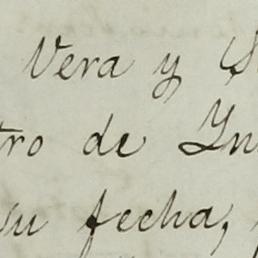 Vera y S
tro de Yn
su fecha,